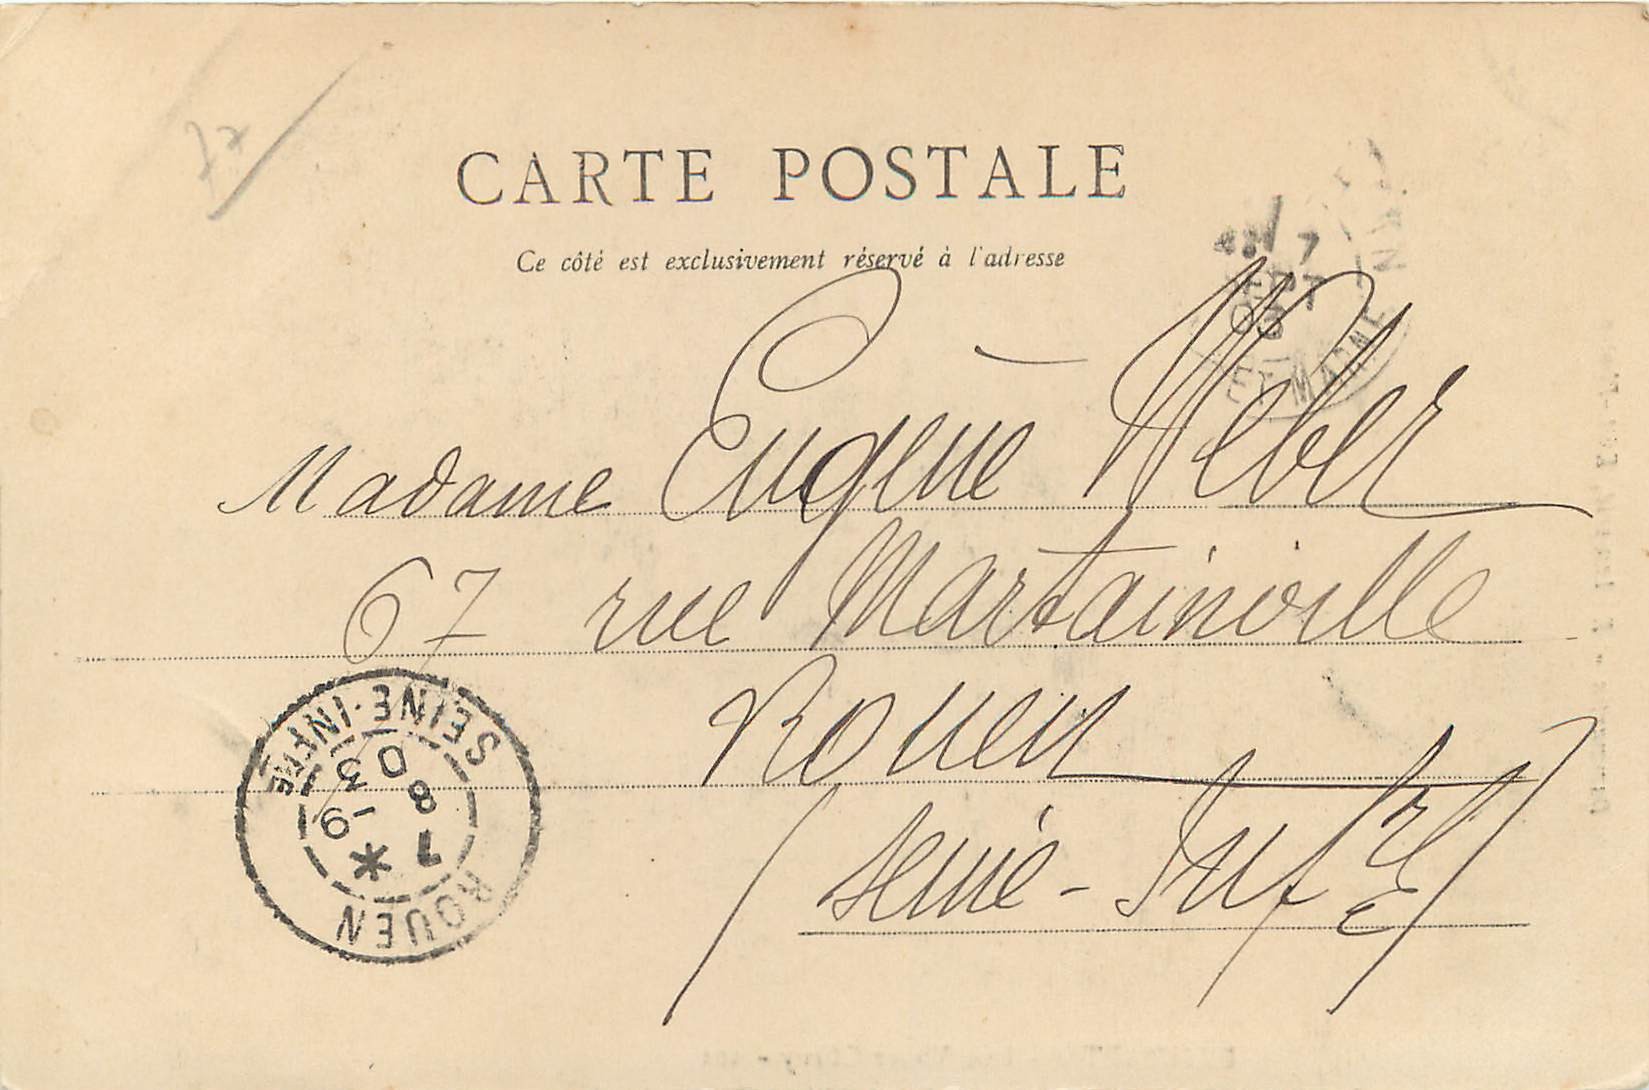 CARTE POSTALE
Ce côté est exclusivement réservé à l'adresse
Madame Eugène Weber
67 rue Martainville
Rouen
(Seine-Infre)
ROUEN
7 *
8 -9
03
SEINE-INFRE